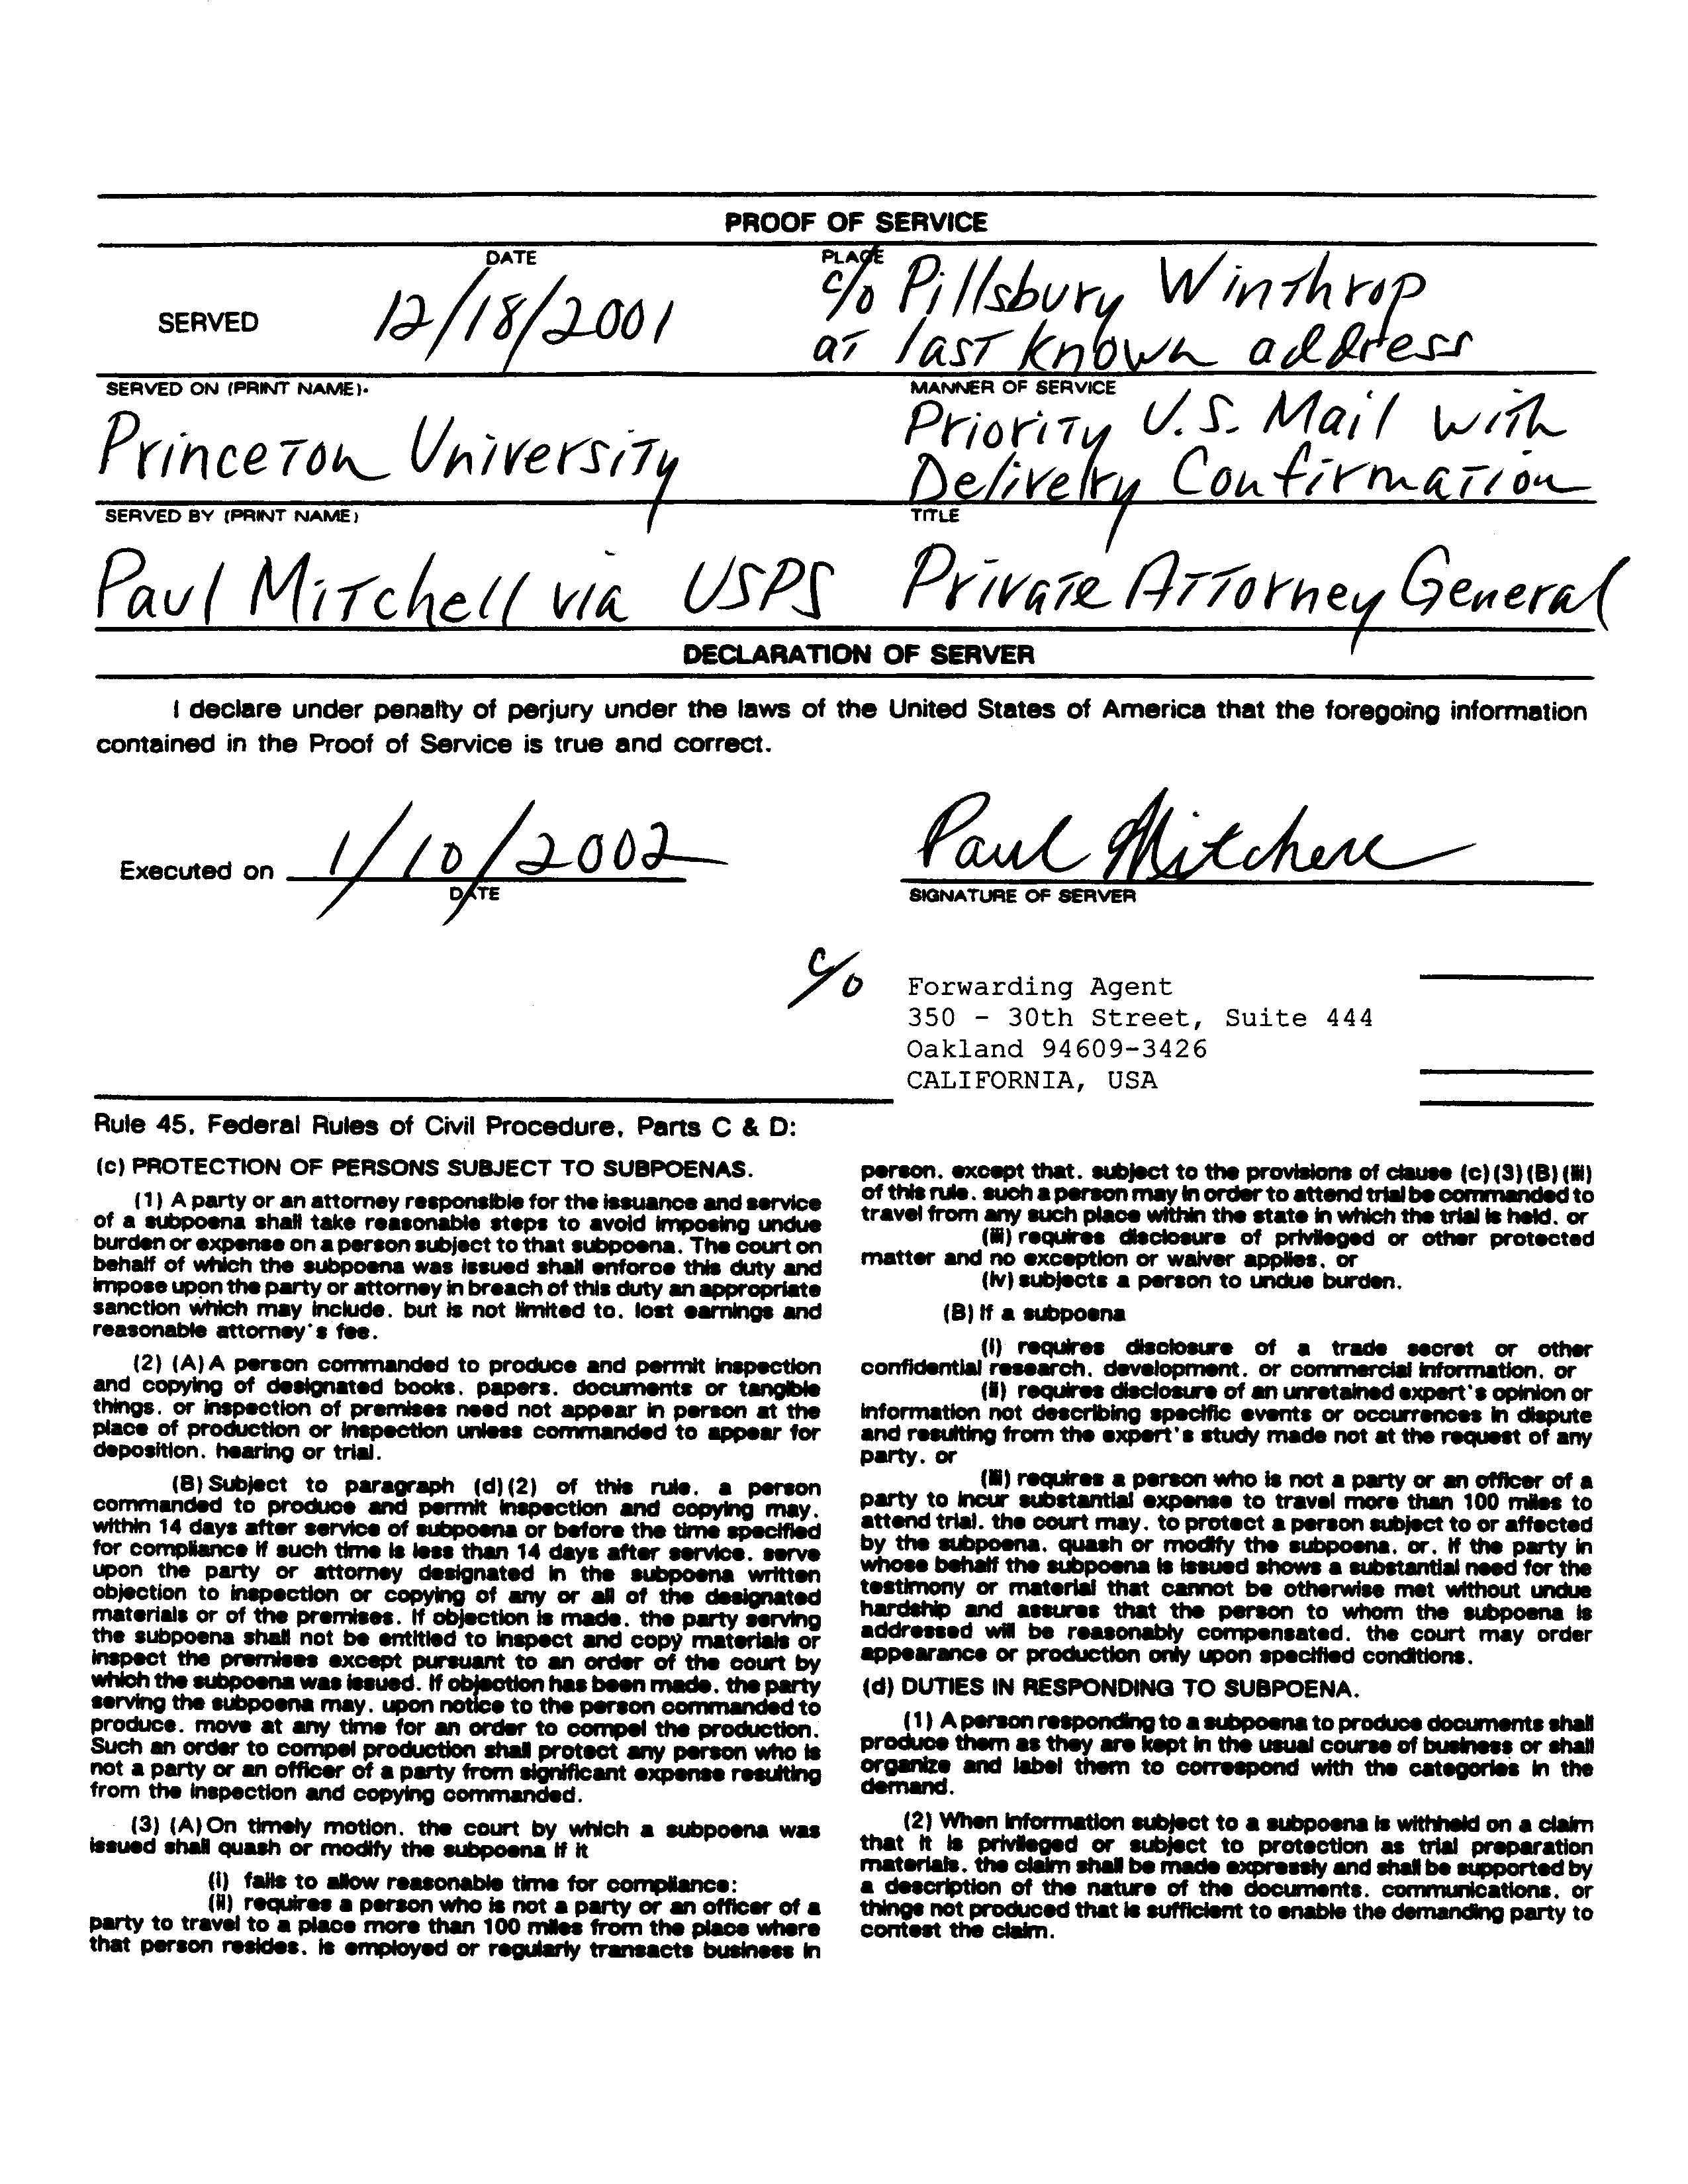 PROOF OF SERVICE
DATE
PLACE
SERVED
12/18/2001
c/o Pillsbury Winthrop
at last known address
SERVED ON (PRINT NAME).
MANNER OF SERVICE
Princeton University
Priority U.S. Mail with
Delivery Confirmation
SERVED BY (PRINT NAME)
TITLE
Paul Mitchell via USPS
Private Attorney General
DECLARATION OF SERVER
I declare under penalty of perjury under the laws of the United States of America that the foregoing information
contained in the Proof of Service is true and correct.
Executed on 1/10/2002
DATE
Paul Mitchell
SIGNATURE OF SERVER
c/o
Forwarding Agent
350 - 30th Street, Suite 444
Oakland 94609-3426
CALIFORNIA, USA
Rule 45, Federal Rules of Civil Procedure, Parts C & D:
(c) PROTECTION OF PERSONS SUBJECT TO SUBPOENAS.
(1) A party or an attorney responsible for the issuance and service
of a subpoena shall take reasonable steps to avoid imposing undue
burden or expense on a person subject to that subpoena. The court on
behalf of which the subpoena was issued shall enforce this duty and
impose upon the party or attorney in breach of this duty an appropriate
sanction which may include, but is not limited to, lost earnings and
reasonable attorney's fee.
(2) (A) A person commanded to produce and permit inspection
and copying of designated books, papers, documents or tangible
things, or inspection of premises need not appear in person at the
place of production or inspection unless commanded to appear for
deposition, hearing or trial.
(B) Subject to paragraph (d)(2) of this rule, a person
commanded to produce and permit inspection and copying may,
within 14 days after service of subpoena or before the time specified
for compliance if such time is less than 14 days after service, serve
upon the party or attorney designated in the subpoena written
objection to inspection or copying of any or all of the designated
materials or of the premises. If objection is made, the party serving
the subpoena shall not be entitled to inspect and copy materials or
inspect the premises except pursuant to an order of the court by
which the subpoena was issued. If objection has been made, the party
serving the subpoena may, upon notice to the person commanded to
produce, move at any time for an order to compel the production.
Such an order to compel production shall protect any person who is
not a party or an officer of a party from significant expense resulting
from the inspection and copying commanded.
(3) (A) On timely motion, the court by which a subpoena was
issued shall quash or modify the subpoena if it
(i) fails to allow reasonable time for compliance;
(ii) requires a person who is not a party or an officer of a
party to travel to a place more than 100 miles from the place where
that person resides, is employed or regularly transacts business in
person, except that, subject to the provisions of clause (c)(3)(B)(iii)
of this rule, such a person may in order to attend trial be commanded to
travel from any such place within the state in which the trial is held, or
(iii) requires disclosure of privileged or other protected
matter and no exception or waiver applies, or
(iv) subjects a person to undue burden.
(B) If a subpoena
(i) requires disclosure of a trade secret or other
confidential research, development, or commercial information, or
(ii) requires disclosure of an unretained expert's opinion or
information not describing specific events or occurrences in dispute
and resulting from the expert's study made not at the request of any
party, or
(iii) requires a person who is not a party or an officer of a
party to incur substantial expense to travel more than 100 miles to
attend trial, the court may, to protect a person subject to or affected
by the subpoena, quash or modify the subpoena, or, if the party in
whose behalf the subpoena is issued shows a substantial need for the
testimony or material that cannot be otherwise met without undue
hardship and assures that the person to whom the subpoena is
addressed will be reasonably compensated, the court may order
appearance or production only upon specified conditions.
(d) DUTIES IN RESPONDING TO SUBPOENA.
(1) A person responding to a subpoena to produce documents shall
produce them as they are kept in the usual course of business or shall
organize and label them to correspond with the categories in the
demand.
(2) When information subject to a subpoena is withheld on a claim
that it is privileged or subject to protection as trial preparation
materials, the claim shall be made expressly and shall be supported by
a description of the nature of the documents, communications, or
things not produced that is sufficient to enable the demanding party to
contest the claim.